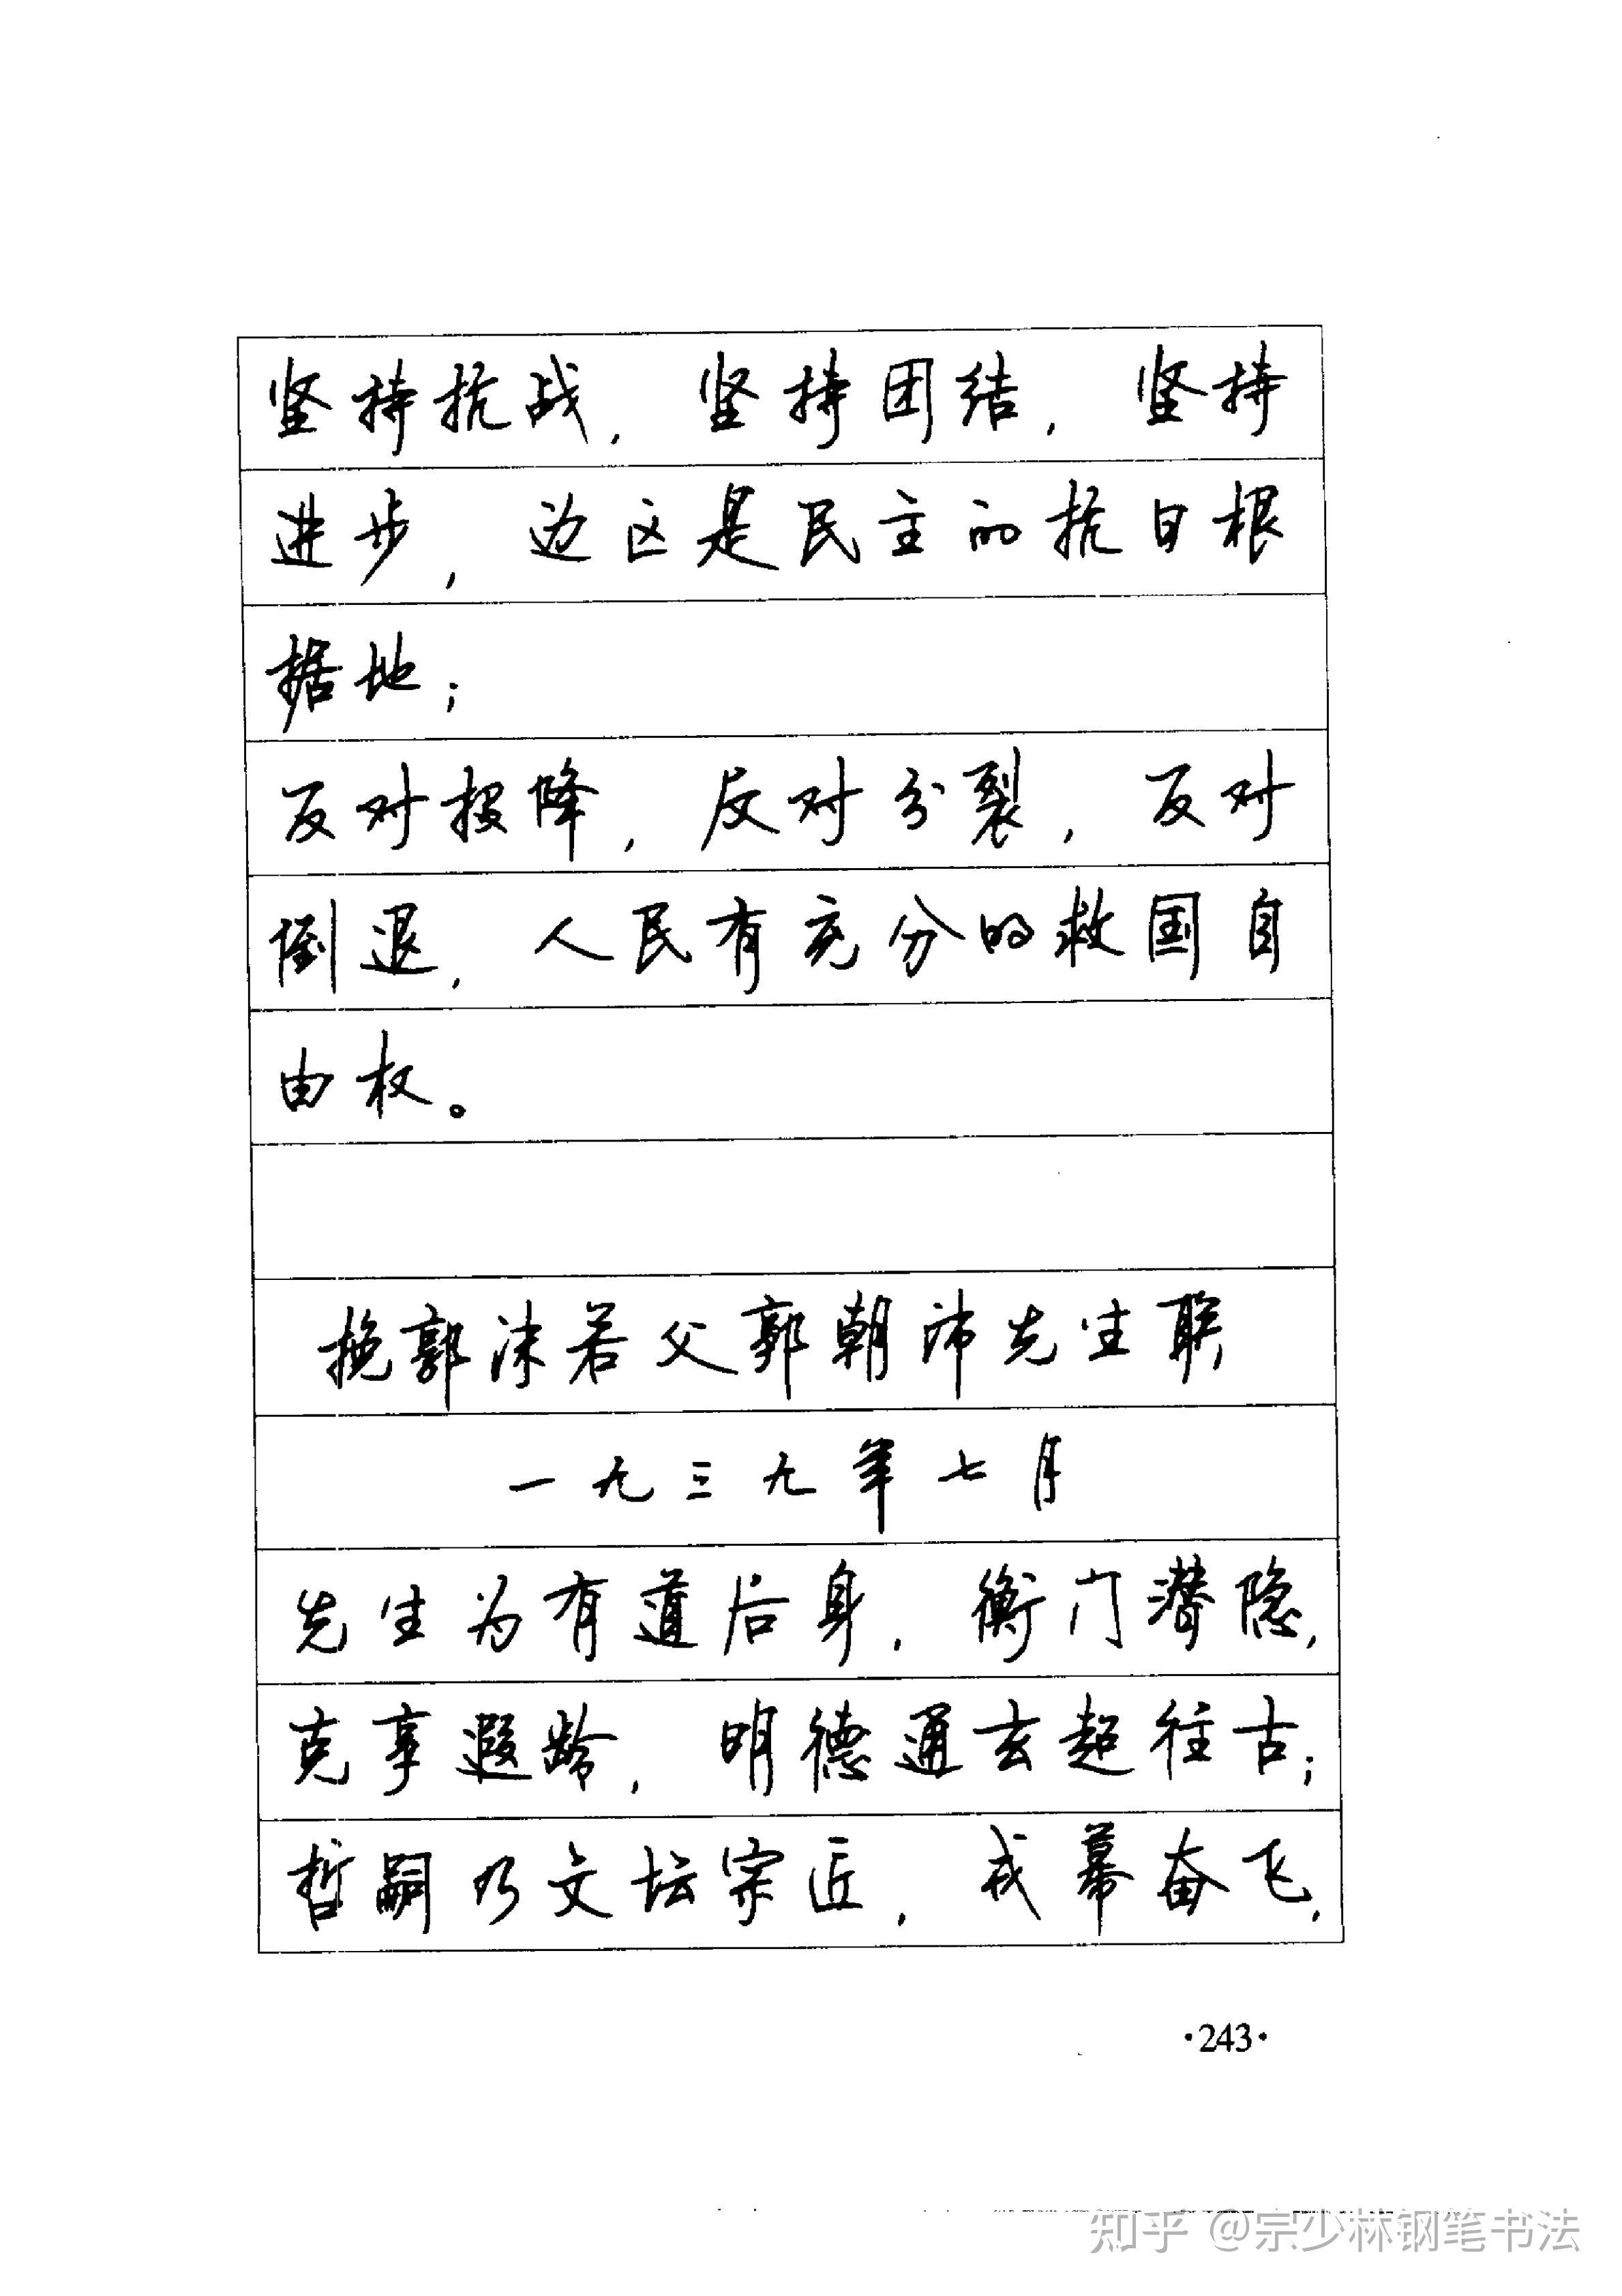 坚持抗战，坚持团结，坚持
进步，边区是民主的抗日根
据地；
反对投降，反对分裂，反对
倒退，人民有充分的救国自
由权。
挽郭沫若父郭朝沛先生联
一九三九年七月
先生为有道后身，衡门潜隐，
克享遐龄，明德通玄超往古；
哲嗣乃文坛宗匠，戎幕奋飞，
·243·
知乎 @宗少林钢笔书法